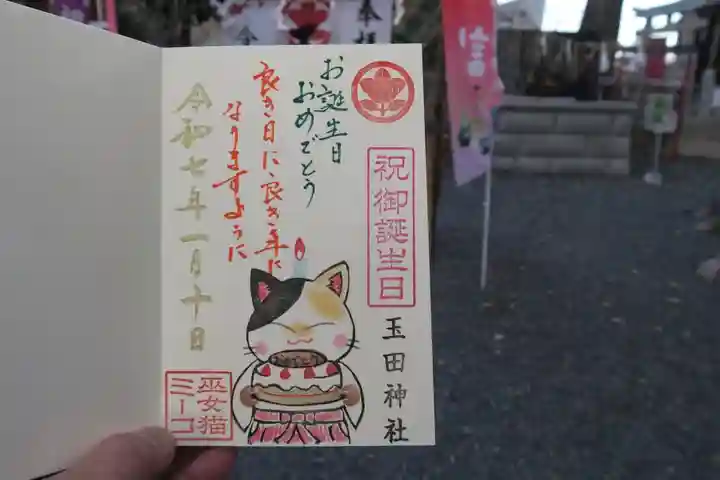 祝御誕生日
玉田神社
お誕生日
おめでとう
良き日に良き年に
なりますように
令和七年一月十日
巫女猫
ミーコ